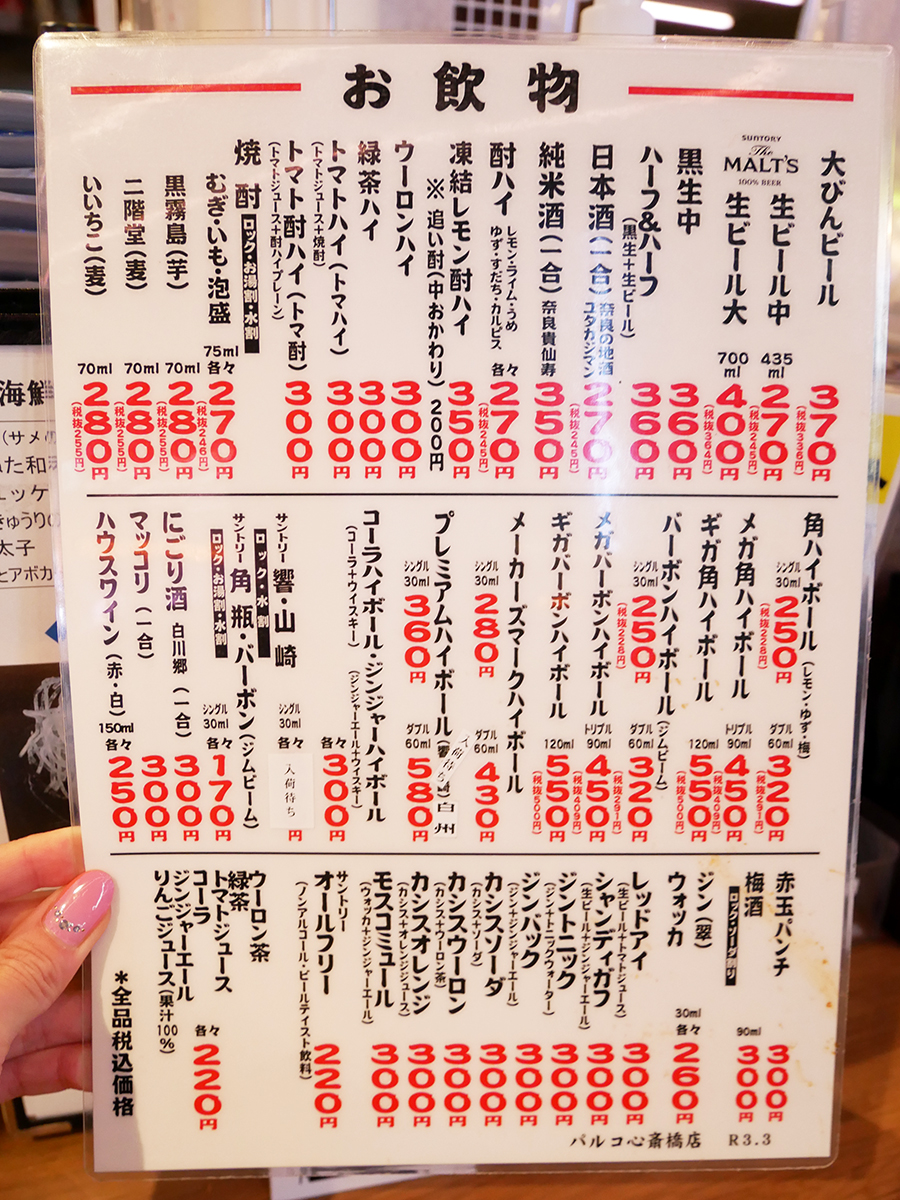 お飲物
大びんビール 370円 (税抜336円)
SUNTORY
The
MALT'S
100% BEER
生ビール中 435ml 270円 (税抜245円)
生ビール大 700ml 400円 (税抜364円)
黒生中 360円
ハーフ&ハーフ (黒生+生ビール) 360円
日本酒(一合) 奈良の地酒 ユタカジマン 270円 (税抜245円)
純米酒(一合) 奈良貴仙寿 350円
酎ハイ レモン・ライム・うめ ゆず・すだち・カルピス 各々 270円 (税抜245円)
凍結レモン酎ハイ 350円
※追い酎(中おかわり) 200円
ウーロンハイ 300円
緑茶ハイ 300円
トマトハイ(トマハイ) (トマトジュース+焼酎) 300円
トマト酎ハイ(トマ酎) (トマトジュース+酎ハイプレーン) 300円
焼酎 ロック・お湯割・水割
むぎ・いも・泡盛 75ml 各々 270円 (税抜246円)
黒霧島(芋) 70ml 280円 (税抜255円)
二階堂(麦) 70ml 280円 (税抜255円)
いいちこ(麦) 70ml 280円 (税抜255円)
角ハイボール(レモン・ゆず・梅) シングル 30ml 250円 (税抜228円) ダブル 60ml 320円 (税抜291円)
メガ角ハイボール トリプル 90ml 450円 (税抜409円)
ギガ角ハイボール 120ml 550円 (税抜500円)
バーボンハイボール(ジムビーム) シングル 30ml 250円 (税抜228円) ダブル 60ml 320円 (税抜291円)
メガバーボンハイボール トリプル 90ml 450円 (税抜409円)
ギガバーボンハイボール 120ml 550円 (税抜500円)
メーカーズマークハイボール シングル 30ml 280円 ダブル 60ml 430円
プレミアムハイボール(響 入荷待ち)白州 シングル 30ml 360円 ダブル 60ml 580円
コーラハイボール・ジンジャーハイボール (コーラ+ウィスキー) (ジンジャーエール+ウィスキー) 各々 300円
サントリー 響・山崎 ロック・水割 シングル 30ml 各々 入荷待ち 円
サントリー 角瓶・バーボン(ジムビーム) ロック・お湯割・水割 シングル 30ml 各々 170円
にごり酒 白川郷(一合) 300円
マッコリ(一合) 300円
ハウスワイン(赤・白) 150ml 各々 250円
赤玉パンチ 300円
梅酒 ロック・ソーダ割り 90ml 300円
ジン(翠)
ウォッカ 30ml 各々 260円
レッドアイ (生ビール+トマトジュース) 300円
シャンディガフ (生ビール+ジンジャーエール) 300円
ジントニック (ジン+トニックウォーター) 300円
ジンバック (ジン+ジンジャーエール) 300円
カシスソーダ (カシス+ソーダ) 300円
カシスウーロン (カシス+ウーロン茶) 300円
カシスオレンジ (カシス+オレンジジュース) 300円
モスコミュール (ウォッカ+ジンジャーエール) 300円
サントリー オールフリー (ノンアルコール・ビールテイスト飲料) 220円
ウーロン茶
緑茶
トマトジュース
コーラ
ジンジャーエール
りんごジュース(果汁100%) 各々 220円
*全品税込価格
パルコ心斎橋店 R3.3
海鮮
(サメ
きゅうりの
太子